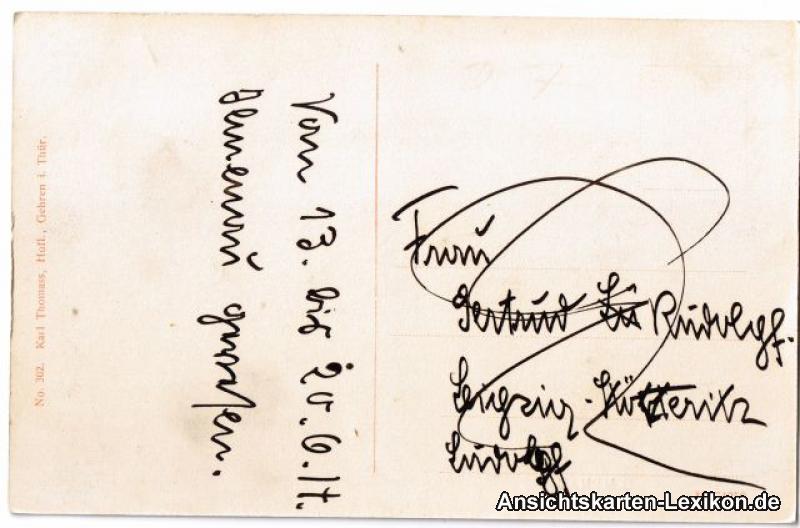 No. 302. Karl Thomass, Hofl., Gehren i. Thür.
Vom 13. bis 20. 6. 17.
gewesen.
Frau
Gertrud Rudolph.
Leipzig-Stötteritz
Ansichtskarten-Lexikon.de